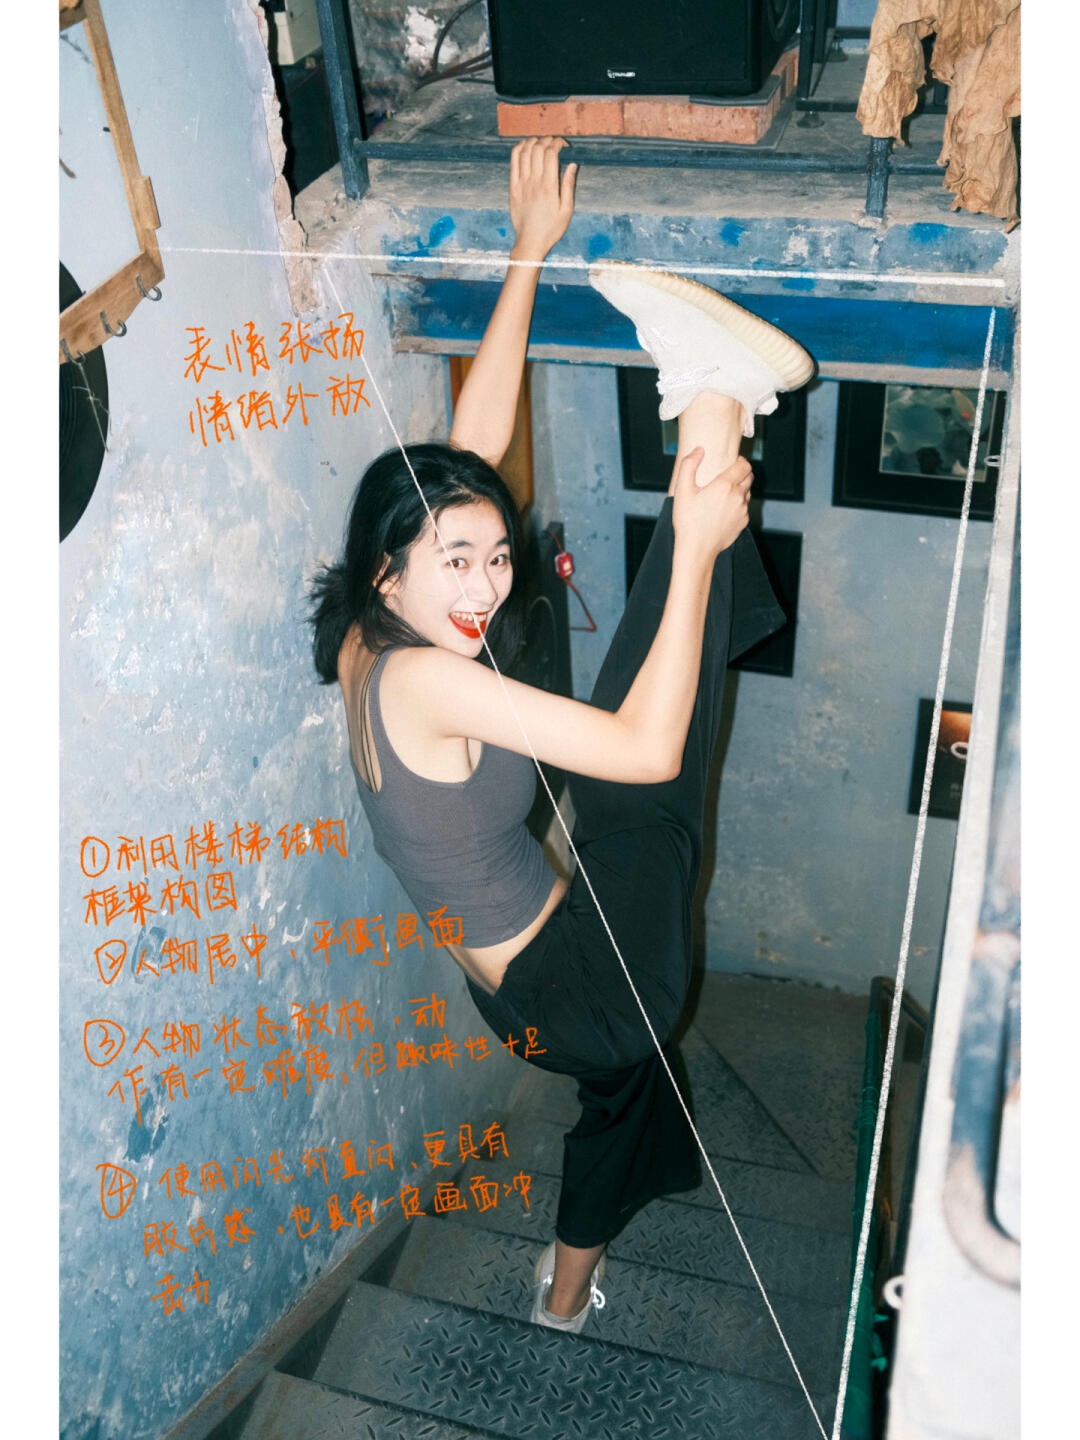 表情张扬
情绪外放
①利用楼梯结构
框架构图
②人物居中、平衡画面
③人物状态放松,动
作有一定难度,但趣味性十足
④使用闪光灯直闪、更具有
胶片感,也具有一定画面冲
击力